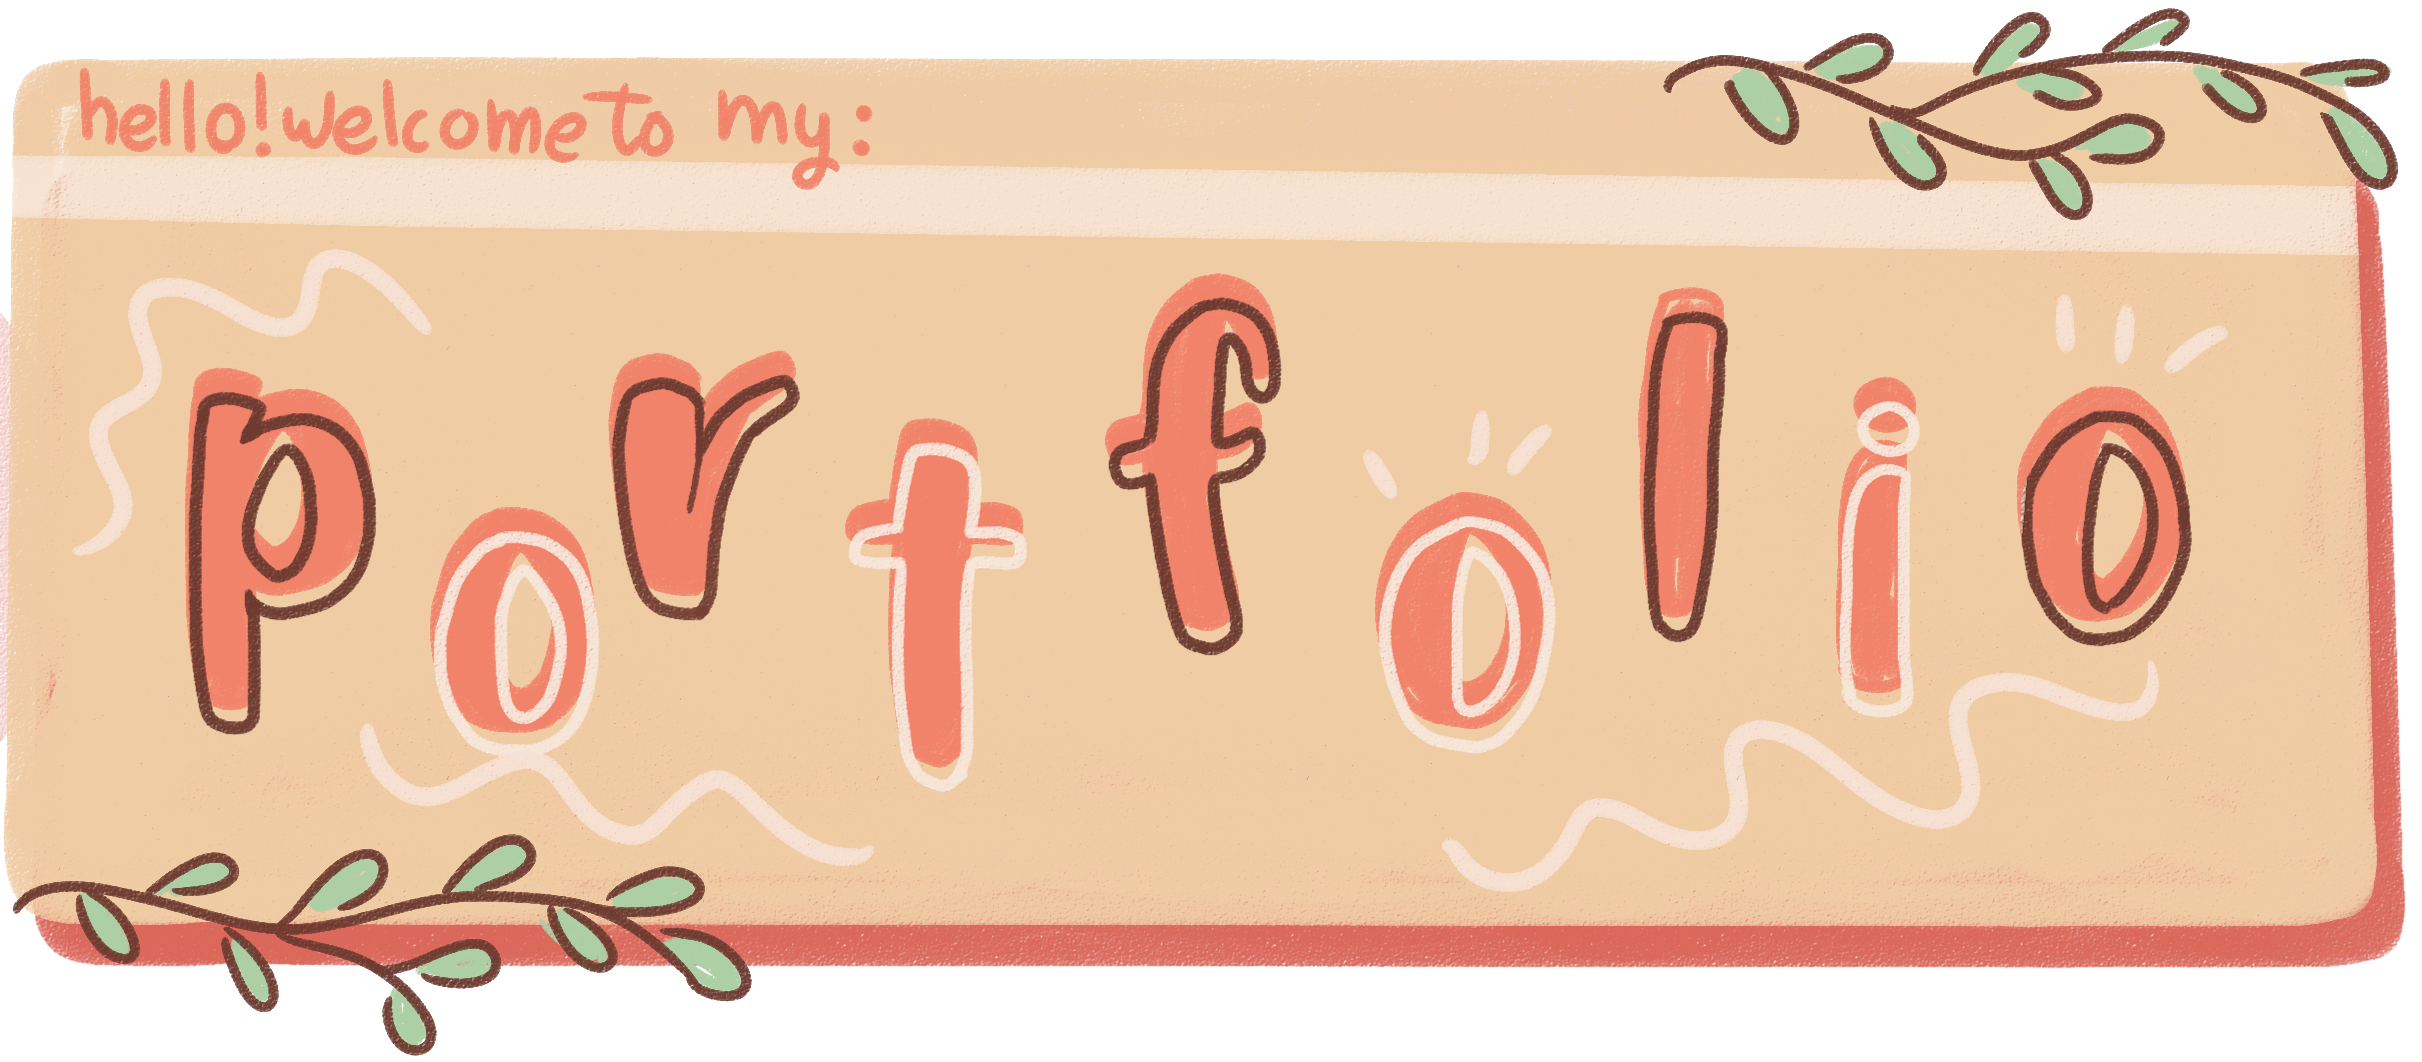 hello! welcome to my:
portfolio